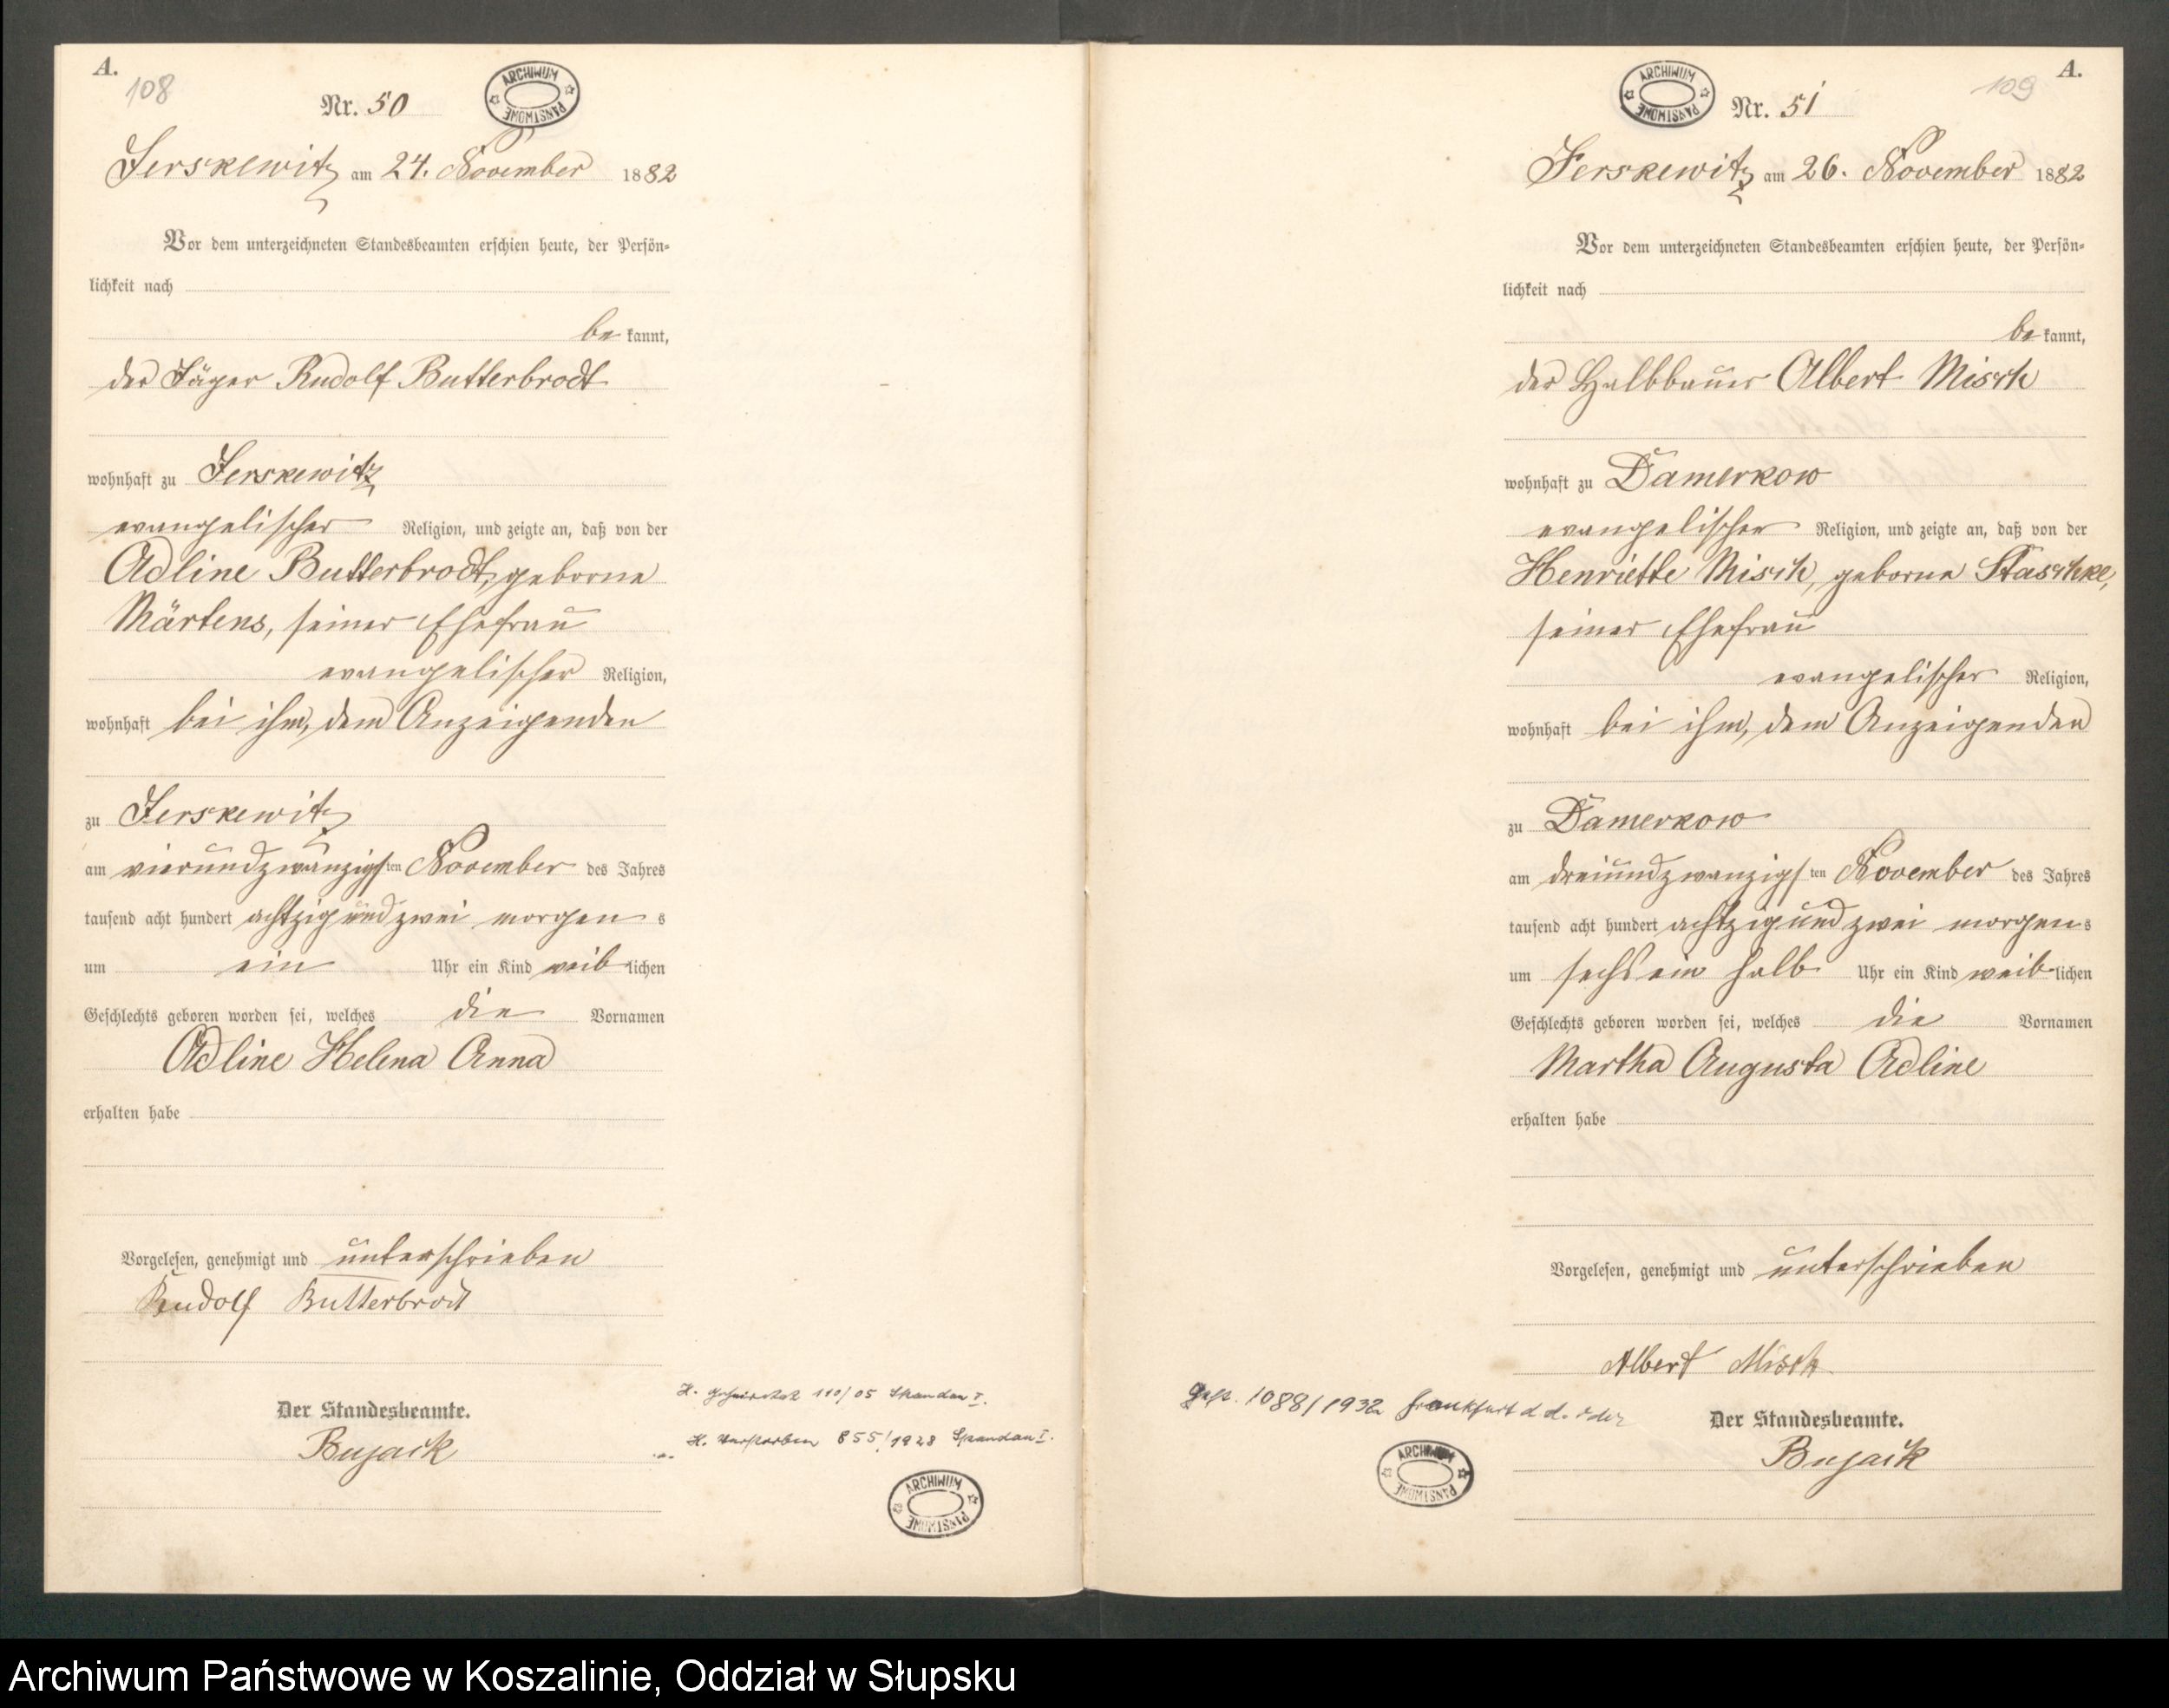 A.
108
Nr. 50
ARCHIWUM PAŃSTWOWE
Jerskewitz am 24. November 1882
Vor dem unterzeichneten Standesbeamten erschien heute, der Persön=
lichkeit nach
be kannt,
der Jäger Rudolf Butterbrodt
wohnhaft zu Jerskewitz
evangelischer Religion, und zeigte an, daß von der
Adline Butterbrodt, geborne
Märtens, seiner Ehefrau
evangelischer Religion,
wohnhaft bei ihm, dem Anzeigenden
zu Jerskewitz
am vierundzwanzigsten November des Jahres
tausend acht hundert achtzig und zwei morgens
um ein Uhr ein Kind weiblichen
Geschlechts geboren worden sei, welches die Vornamen
Adline Helena Anna
erhalten habe
Vorgelesen, genehmigt und unterschrieben
Rudolf Butterbrodt
Der Standesbeamte.
Bujack
110/05 Spandau I.
verstorben 855/1928 Spandau I.
ARCHIWUM PAŃSTWOWE
A.
109
ARCHIWUM PAŃSTWOWE
Nr. 51
Jerskewitz am 26. November 1882
Vor dem unterzeichneten Standesbeamten erschien heute, der Persön=
lichkeit nach
be kannt,
der Halbbauer Albert Misch
wohnhaft zu Damerkow
evangelischer Religion, und zeigte an, daß von der
Henriette Misch, geborne Staschke,
seiner Ehefrau
evangelischer Religion,
wohnhaft bei ihm, dem Anzeigenden
zu Damerkow
am dreiundzwanzigsten November des Jahres
tausend acht hundert achtzig und zwei morgens
um sechs ein halb Uhr ein Kind weiblichen
Geschlechts geboren worden sei, welches die Vornamen
Martha Augusta Adline
erhalten habe
Vorgelesen, genehmigt und unterschrieben
Albert Misch
Der Standesbeamte.
Bujack
1088/1932 Frankfurt a. d. Oder
ARCHIWUM PAŃSTWOWE
Archiwum Państwowe w Koszalinie, Oddział w Słupsku